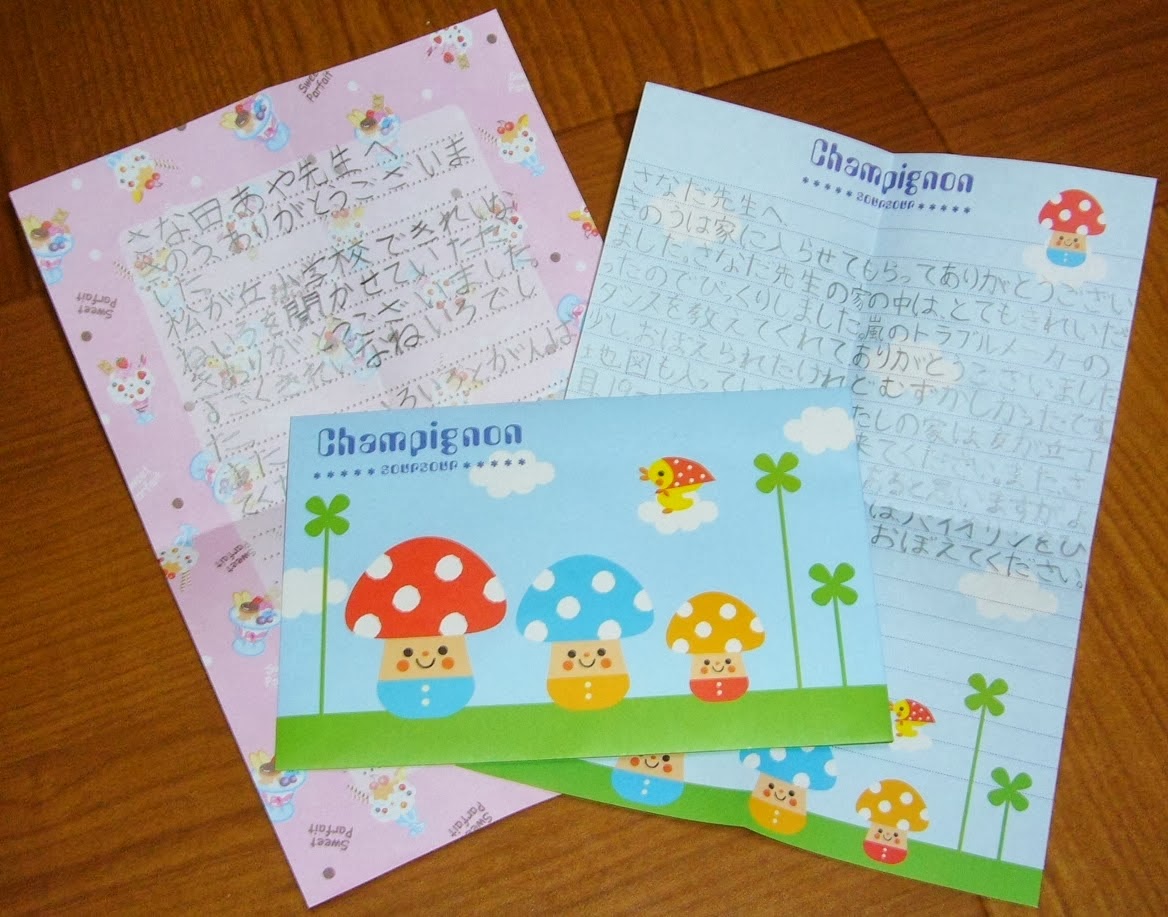 さな田あや先生へ
きのう、ありがとうございま
した。
松が丘小学校できれいな
ねいろを聞かせていただ
きありがとうございました。
すごくきれいなねいろでし
た。
いろいろとがんば
てく
Sweet Parfait
Champignon
SOUPSOUP
さなだ先生へ
きのうは家に入らせてもらってありがとうござい
ました。さなだ先生の家の中は、とてもきれいだ
ったのでびっくりしました。嵐のトラブルメーカーの
ダンスを教えてくれてありがとうございました
少しおぼえられたけれどむずかしかったです
地図も入ってい
月19
たしの家は
てください。また、さ
あると思いますがよ
はバイオリンをひ
おぼえてください。
Champignon
SOUPSOUP